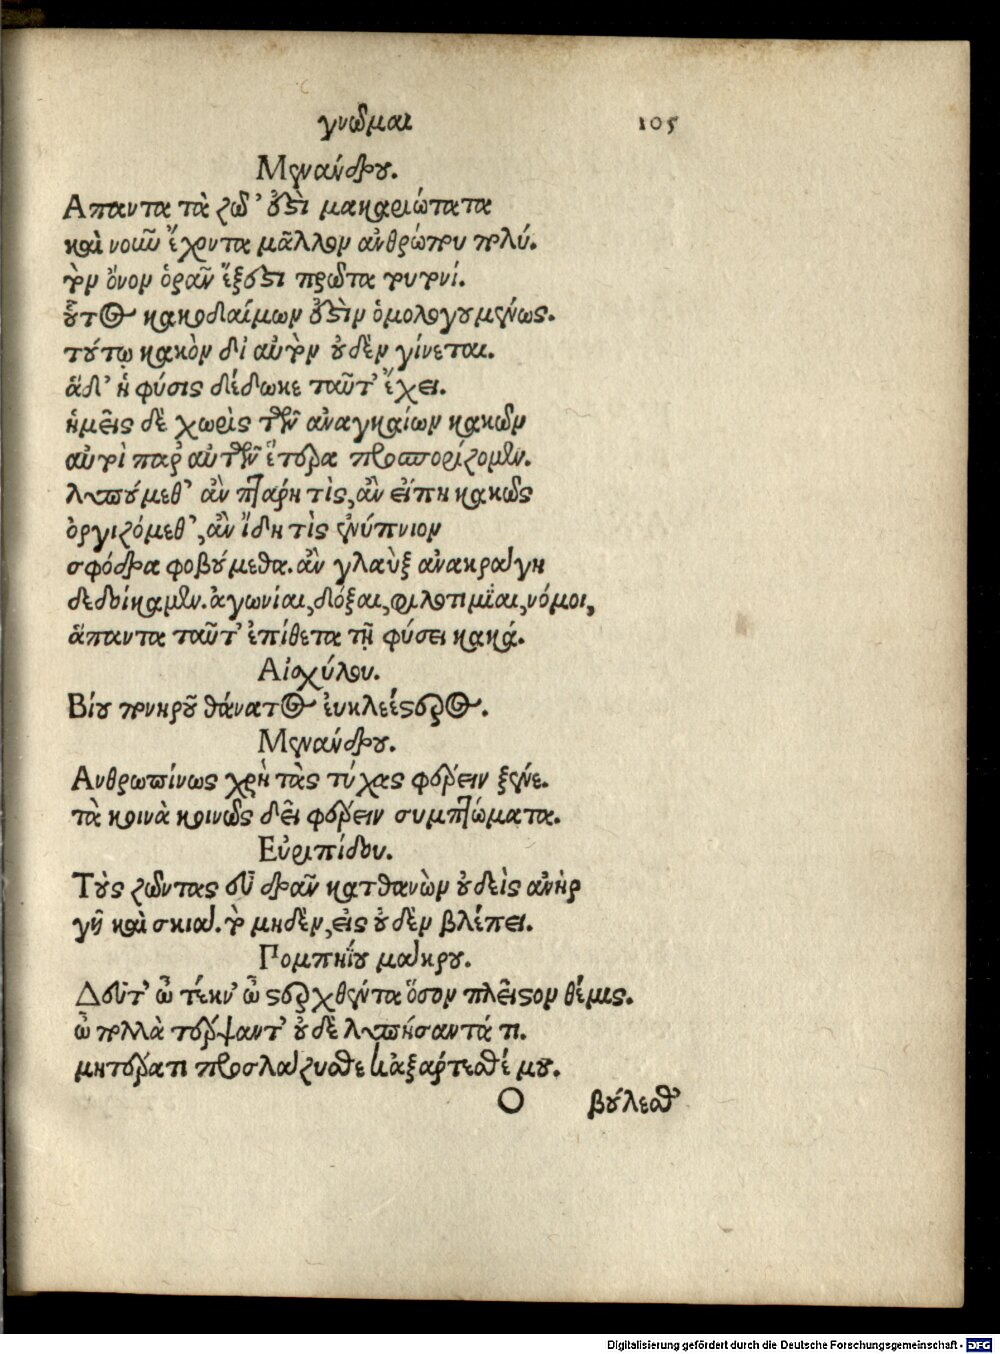 γνῶμαι 105
Μενάνδρου.
Απαντα τὰ ζῶ' ἐστὶ μακαριώτατα
καὶ νοῦν ἔχοντα μᾶλλον ἀνθρώπου πολύ.
τὸν ὄνον ὁρᾶν ἔξεστι πρῶτα τουτονί.
οὗτος κακοδαίμων ἐστὶν ὁμολογουμένως.
τούτῳ κακὸν δι' αὐτὸν οὐδὲν γίνεται.
ἃ δ' ἡ φύσις δέδωκε ταῦτ' ἔχει.
ἡμεῖς δὲ χωρὶς τῶν ἀναγκαίων κακῶν
αὐτοὶ παρ' αὐτῶν ἕτερα προσπορίζομεν.
λυπούμεθ' ἂν πταρῇ τὶς, ἂν εἴπῃ κακῶς
ὀργιζόμεθ', ἂν ἴδῃ τὶς ἐνύπνιον
σφόδρα φοβούμεθα. ἂν γλαὺξ ἀνακράγῃ
δεδοίκαμεν. ἀγωνίαι, δόξαι, φιλοτιμίαι, νόμοι,
ἅπαντα ταῦτ' ἐπίθετα τῇ φύσει κακά.
Αἰσχύλου.
Βίου πονηροῦ θάνατος ἐυκλεέστερος.
Μενάνδρου.
Ανθρωπίνως χρὴ τὰς τύχας φέρειν ξένε.
τὰ κοινὰ κοινῶς δεῖ φέρειν συμπτώματα.
Εὐριπίδου.
Τοὺς ζῶντας εὖ δρᾶν κατθανὼν οὐδεὶς ἀνὴρ
γῆ καὶ σκιά. τὸ μηδὲν, εἰς οὐδὲν βλέπει.
Πομπηΐου μάκρου.
Δεῦτ' ὦ τέκν' ὦ στερχθέντα ὅσον πλεῖστον θέμις.
ὦ πολλὰ τέρψαντ' οὐδὲ λυπήσαντά τι.
μητέρα τι προσλάζυσθε κἀξαρτεσθέ μου.
O βούλεσθ'